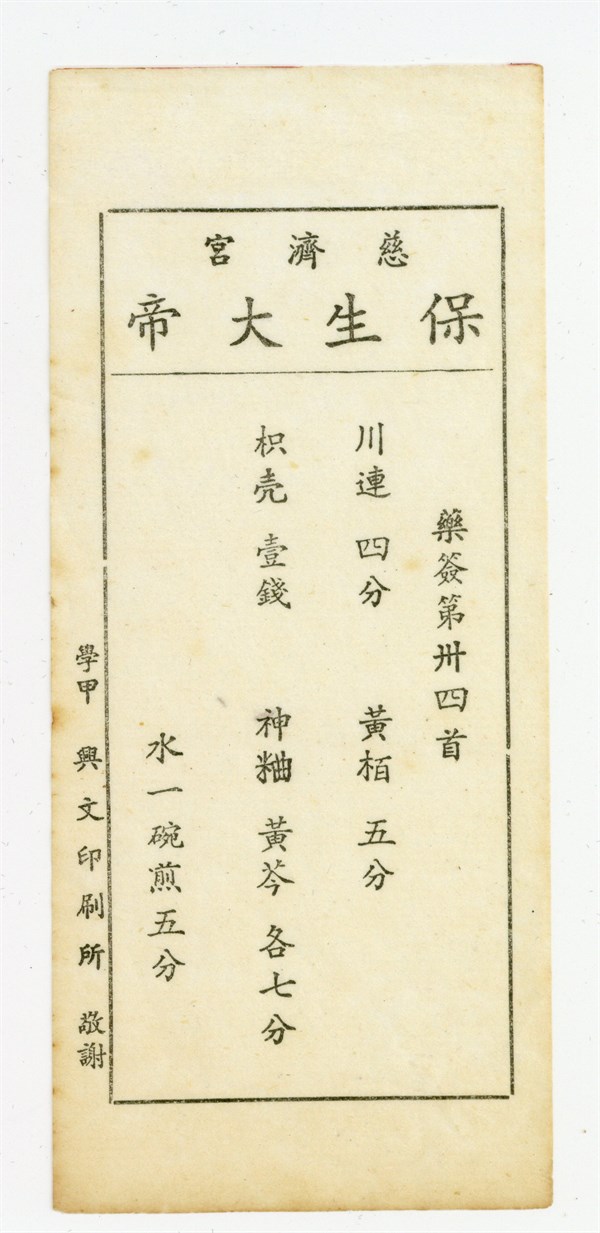 慈濟宮
保生大帝
藥簽第卅四首
川連 四分 黃栢 五分
枳壳 壹錢 神粬 黃芩 各七分
水一碗煎五分
學甲 興文印刷所 敬謝